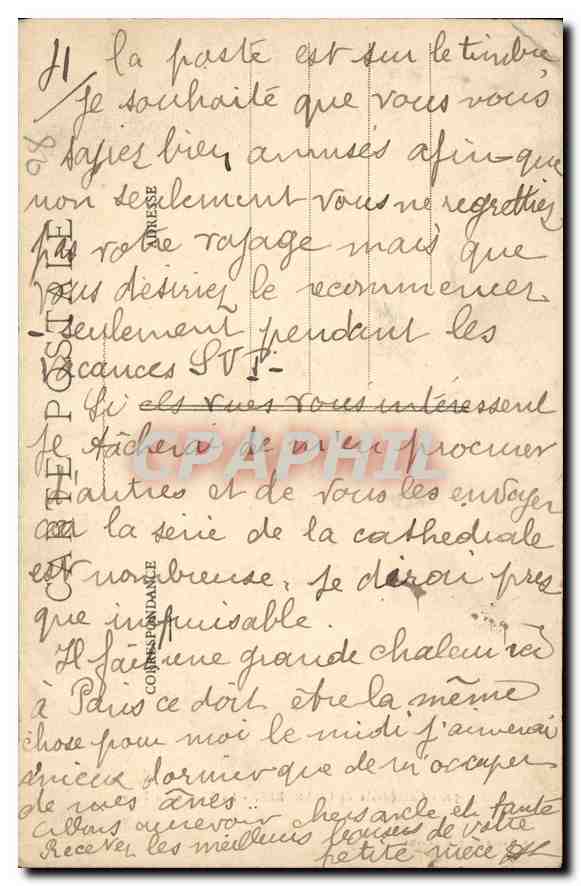 4/ la poste est sur le timbre
Je souhaite que vous vous
soyiez bien amusés afin que
non seulement vous ne regrettiez
pas votre voyage mais que
vous désiriez le recommencer
- seulement pendant les
vacances SVP -
Si ces vues vous intéressent
je tâcherai de m'en procurer
d'autres et de vous les envoyer
car la série de la cathédrale
est nombreuse, je dirai pres
que inépuisable.
Il fait une grande chaleur ici
à Paris ce doit être la même
chose pour moi le midi j'aimerai
mieux dormir que de m'occuper
de mes ânes..
Allons aurevoir chers oncle et tante
Recevez les meilleurs baisers de votre
petite nièce
CARTE POSTALE
ADRESSE
CORRESPONDANCE
28
CPAPHIL